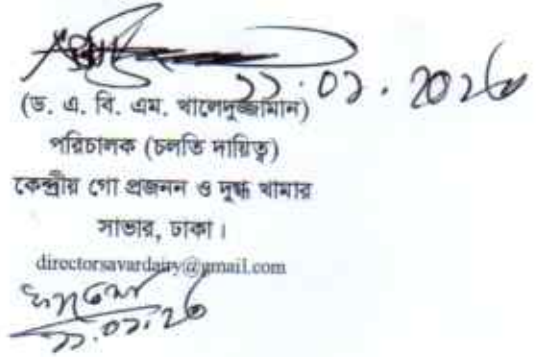 ২২.০১.২০২৬
(ড. এ. বি. এম. খালেদুজ্জামান)
পরিচালক (চলতি দায়িত্ব)
কেন্দ্রীয় গো প্রজনন ও দুগ্ধ খামার
সাভার, ঢাকা।
directorsavardairy@gmail.com
২২.০১.২৬